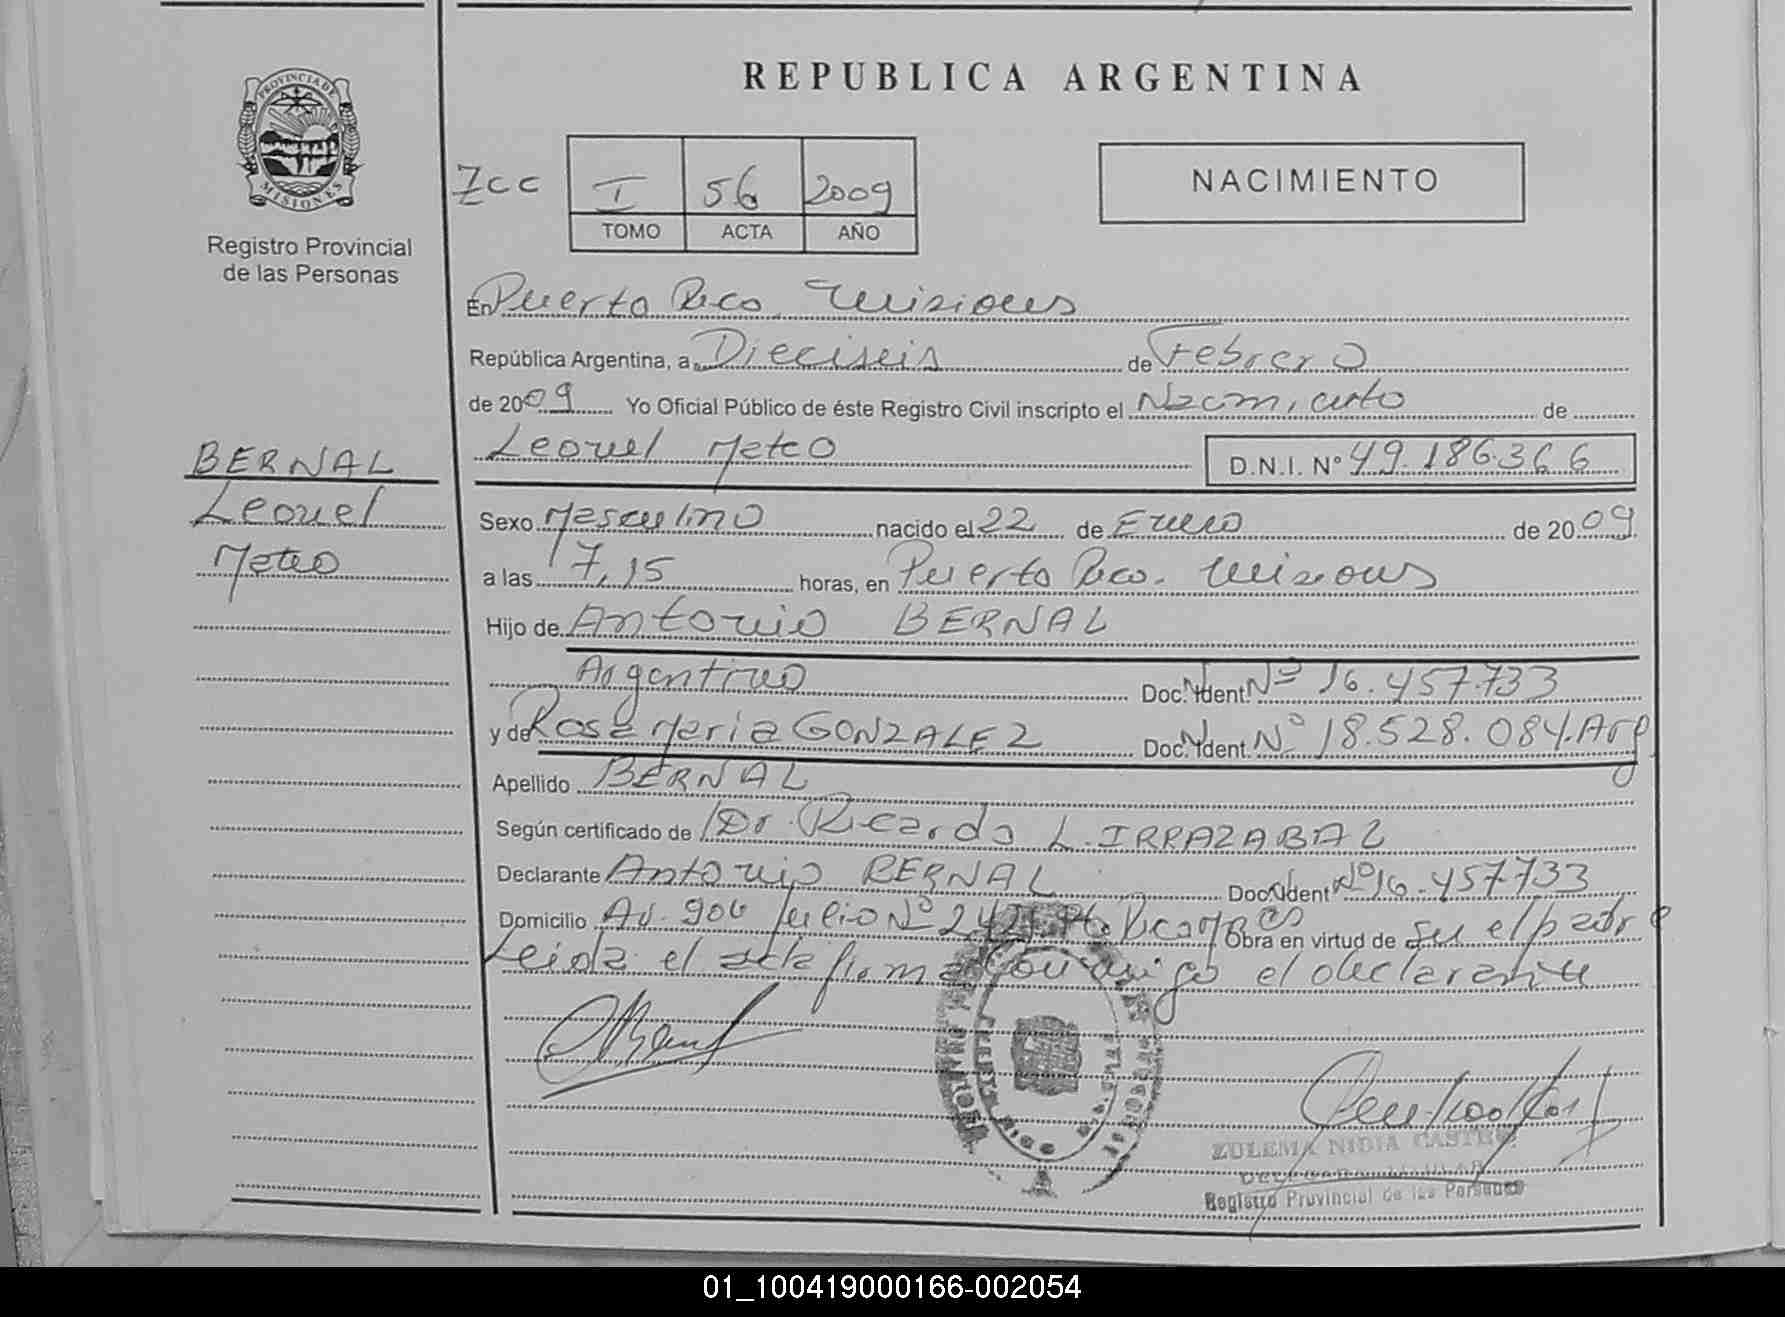 REPUBLICA ARGENTINA
PROVINCIA DE
MISIONES
Registro Provincial
de las Personas
Zcc
I 56 2009
TOMO ACTA AÑO
NACIMIENTO
En Puerto Rico, Misiones
República Argentina, a Dieciseis de Febrero
de 2009 Yo Oficial Público de éste Registro Civil inscripto el Nacimiento de
Leonel Mateo D.N.I. Nº 49.186.366
BERNAL
Leonel
Mateo
Sexo Masculino nacido el 22 de Enero de 2009
a las 7,15 horas, en Puerto Rico. Misiones
Hijo de Antonio BERNAL
Argentino Doc. Ident. Nº 16.457.733
y de Rosa Maria GONZALEZ Doc. Ident. Nº 18.528.084. Arg.
Apellido BERNAL
Según certificado de Dr. Ricardo L. IRRAZABAL
Declarante Antonio BERNAL Doc. Ident Nº 16.457.733
Domicilio Av. 9 de Julio Nº Pto Rico Obra en virtud de ser el padre
Leida el acta firma conmigo el declarante
ZULEMA NIDIA CASTRO
Registro Provincial de las Personas
01_100419000166-002054